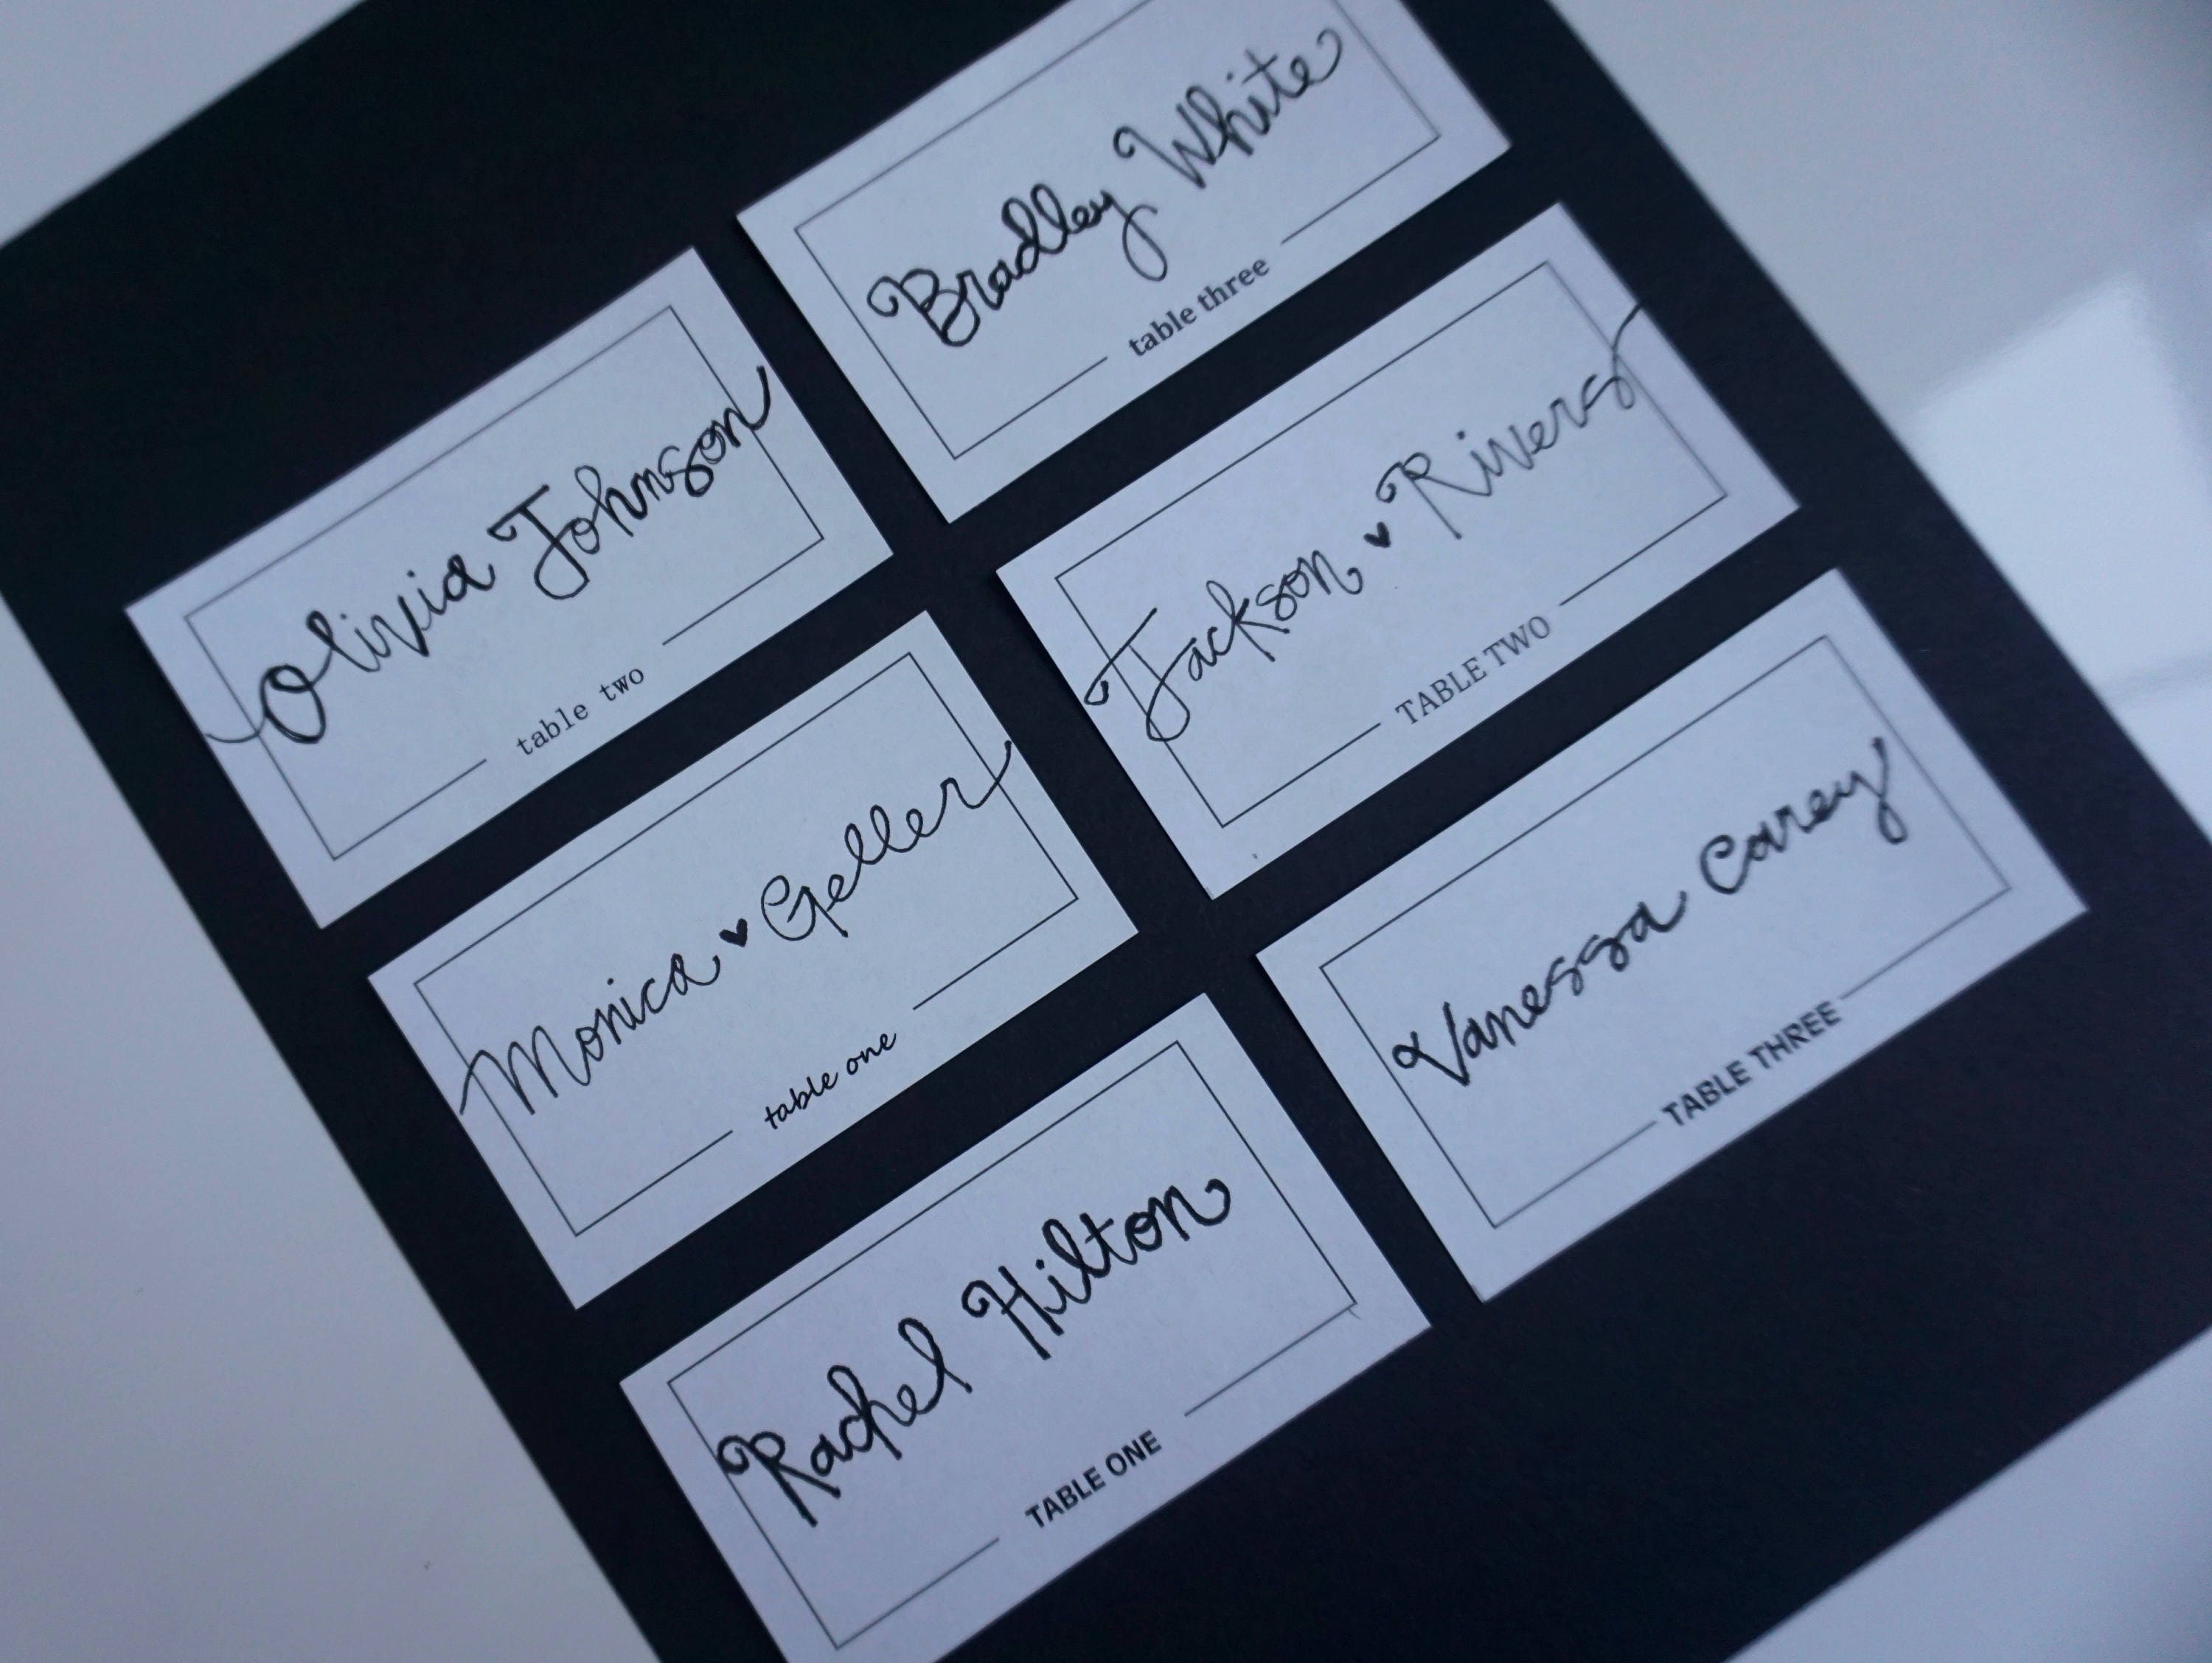 Olivia Johnson
table two
Monica ♥ Geller
table one
Rachel Hilton
TABLE ONE
Bradley White
table three
Jackson ♥ Rivers
TABLE TWO
Vanessa Carey
TABLE THREE